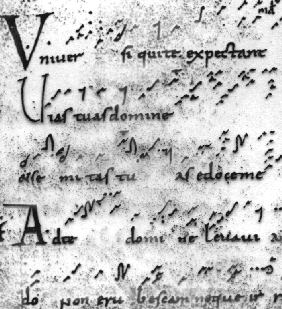 Vniuer si qui te expectant
Uias tuas domine
mi tas tu as edoceme
Ad te domi ne leuaui
non eru bescam neque ir